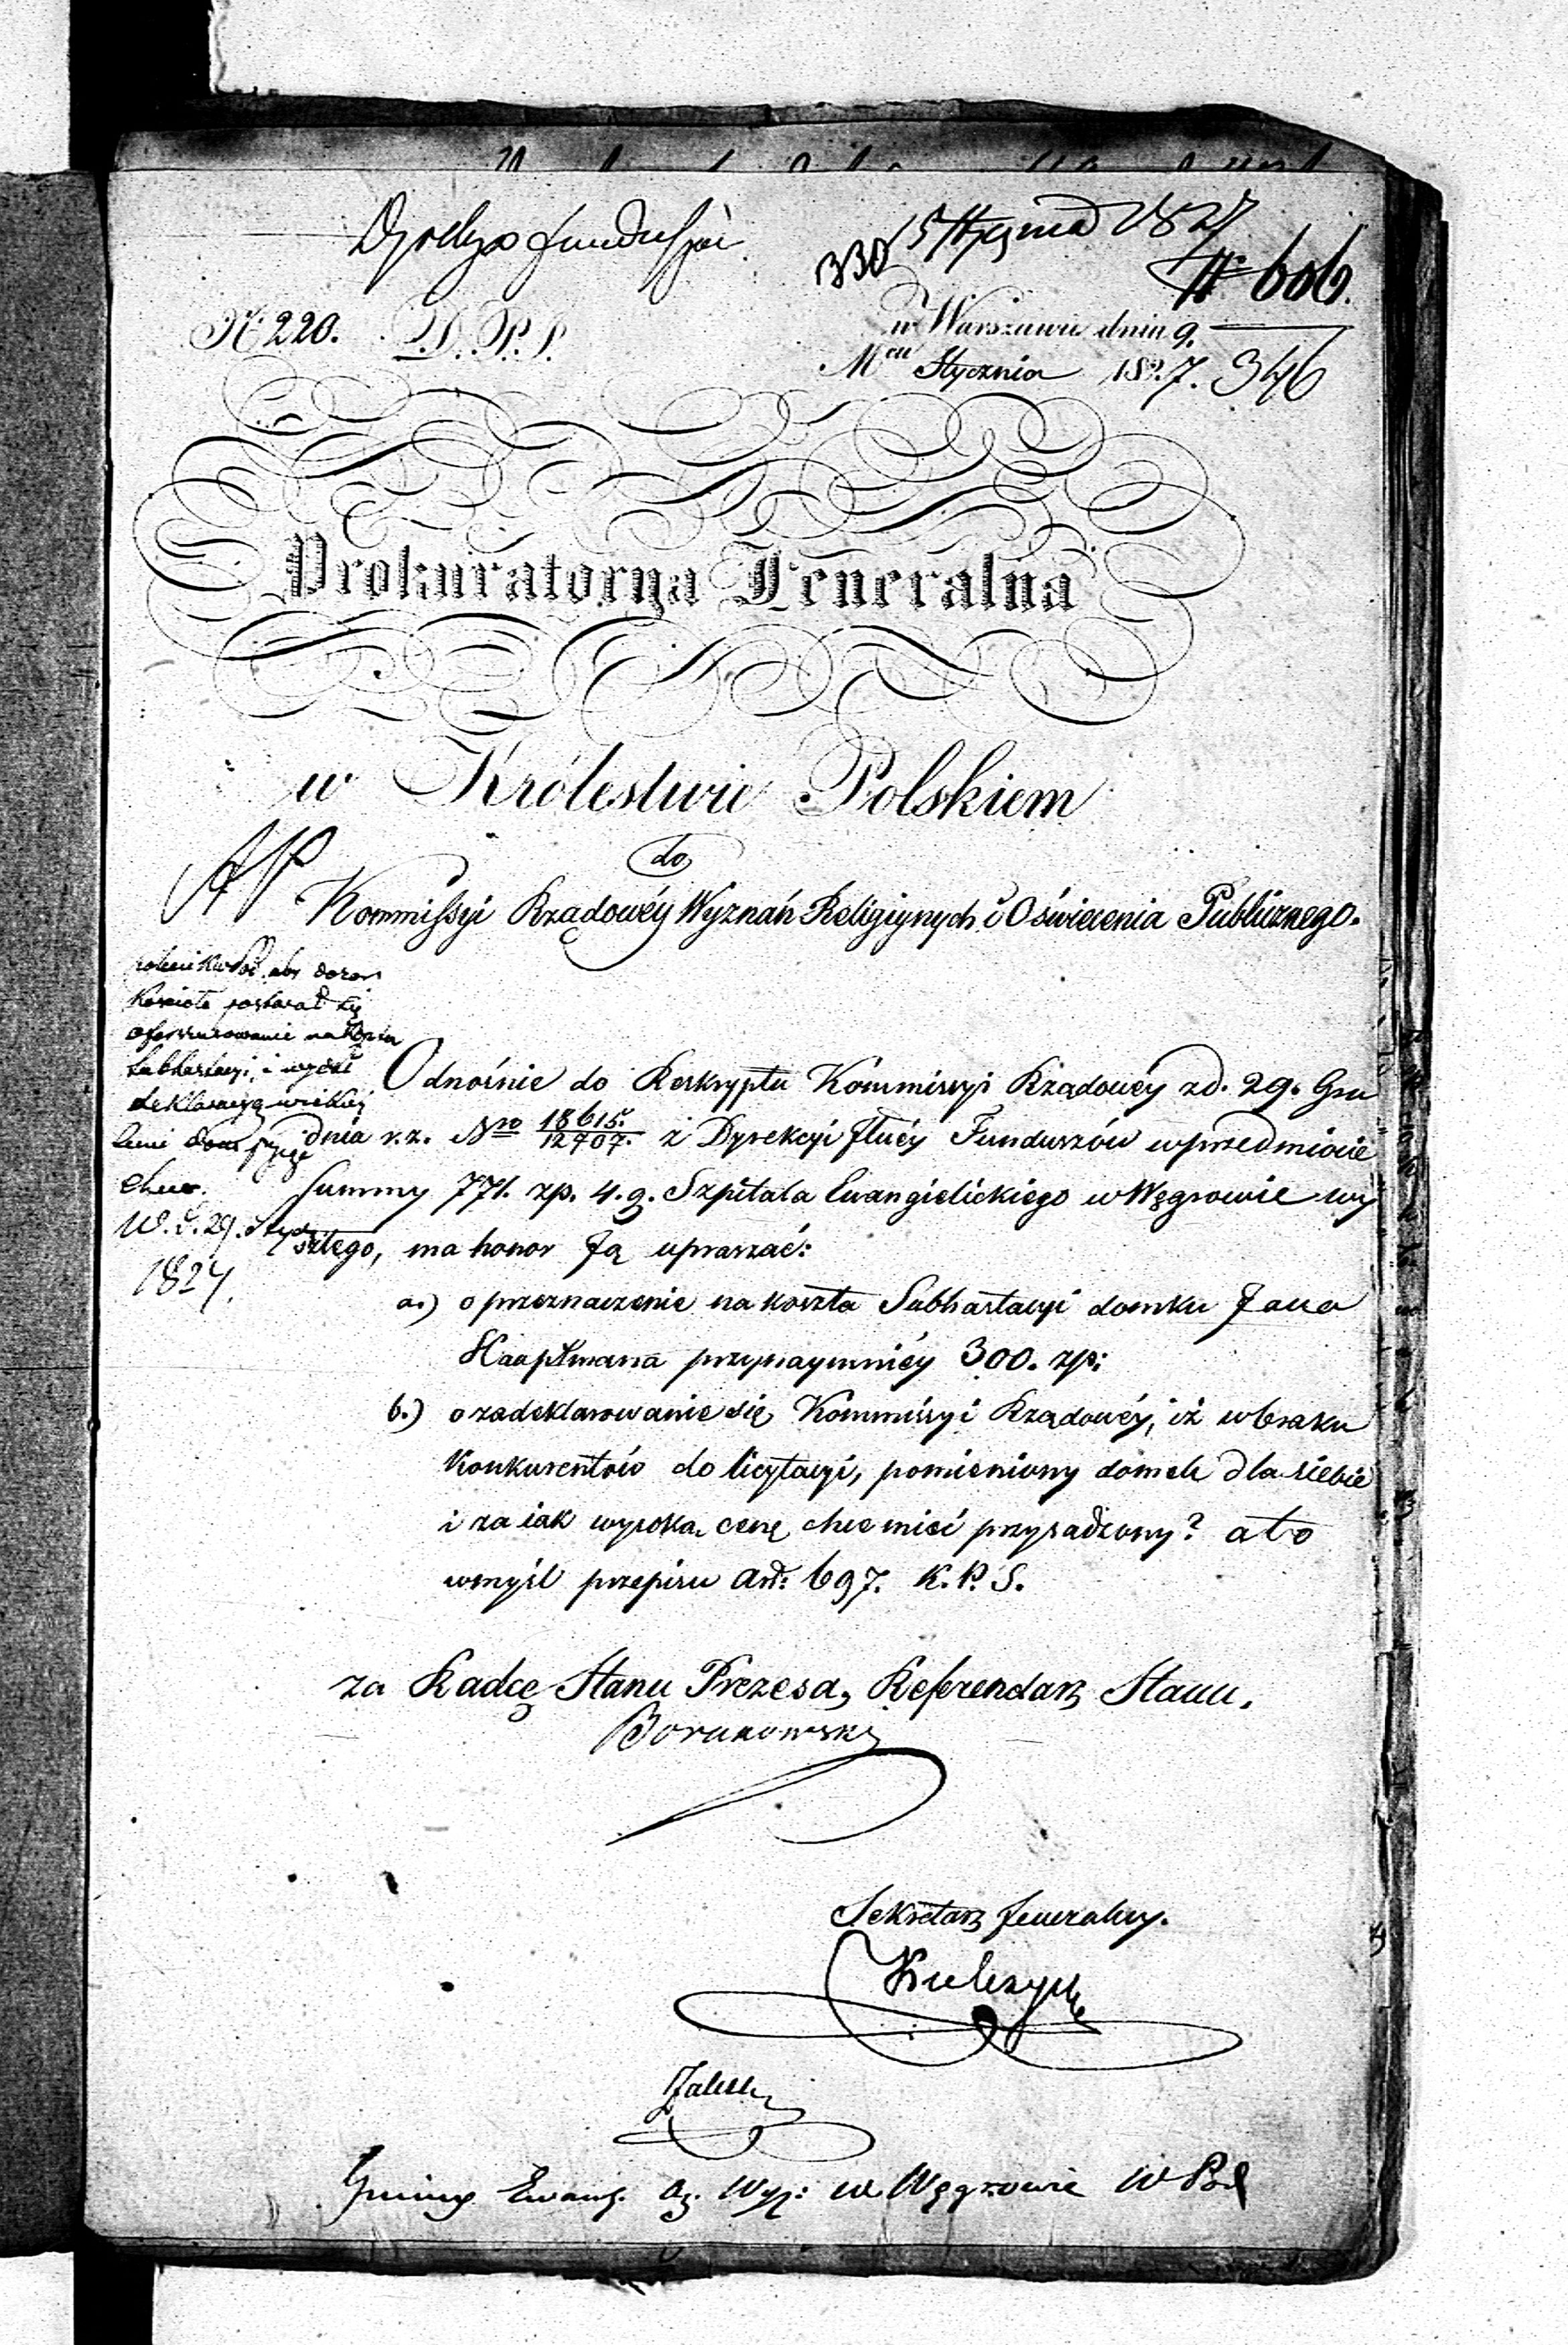 Dyrekcya Funduszów
15 Stycznia 1827
330
№ 606.
№ 220. D. P. S.
w Warszawie dnia 9.
Mca Stycznia 1827. 346
Prokuratorya Generalna
w Królestwie Polskiem
do
Kommissyi Rządowéy Wyznań Religiynych i Oświecenia Publicznego.
aby dozor
Kościoła postarał się
na Koszta
Subhastacyi, i wydał
deklaracyą
W. d. 29. Stycz
1827.
Odnośnie do Reskryptu Kommissyi Rządowéy z d. 29. Gru
dnia r. z. Nro 18615/12707. z Dyrekcyi Funduszów w przedmiocie
Summy 771. zp. 4. g. Szpitala Ewangielickiego w Węgrowie wy
szłego, ma honor Ją upraszać:
a.) o przeznaczenie na koszta Subhastacyi domku Jana
Hauptmana przynaymniéy 300. zp:
b.) o zadeklarowanie się Kommissyi Rządowéy, iż w braku
Konkurentów do licytacyi, pomieniony domek dla siebie
i za iak wysoką cenę chce mieć przysądzony? a to
w myśl przepisu Art: 697. K. P. S.
za Radcę Stanu Prezesa, Referendarz Stanu,
Sekretarz Jeneralny.
Gminy Ewang. Aug. Wyz: w Węgrowie W Pod